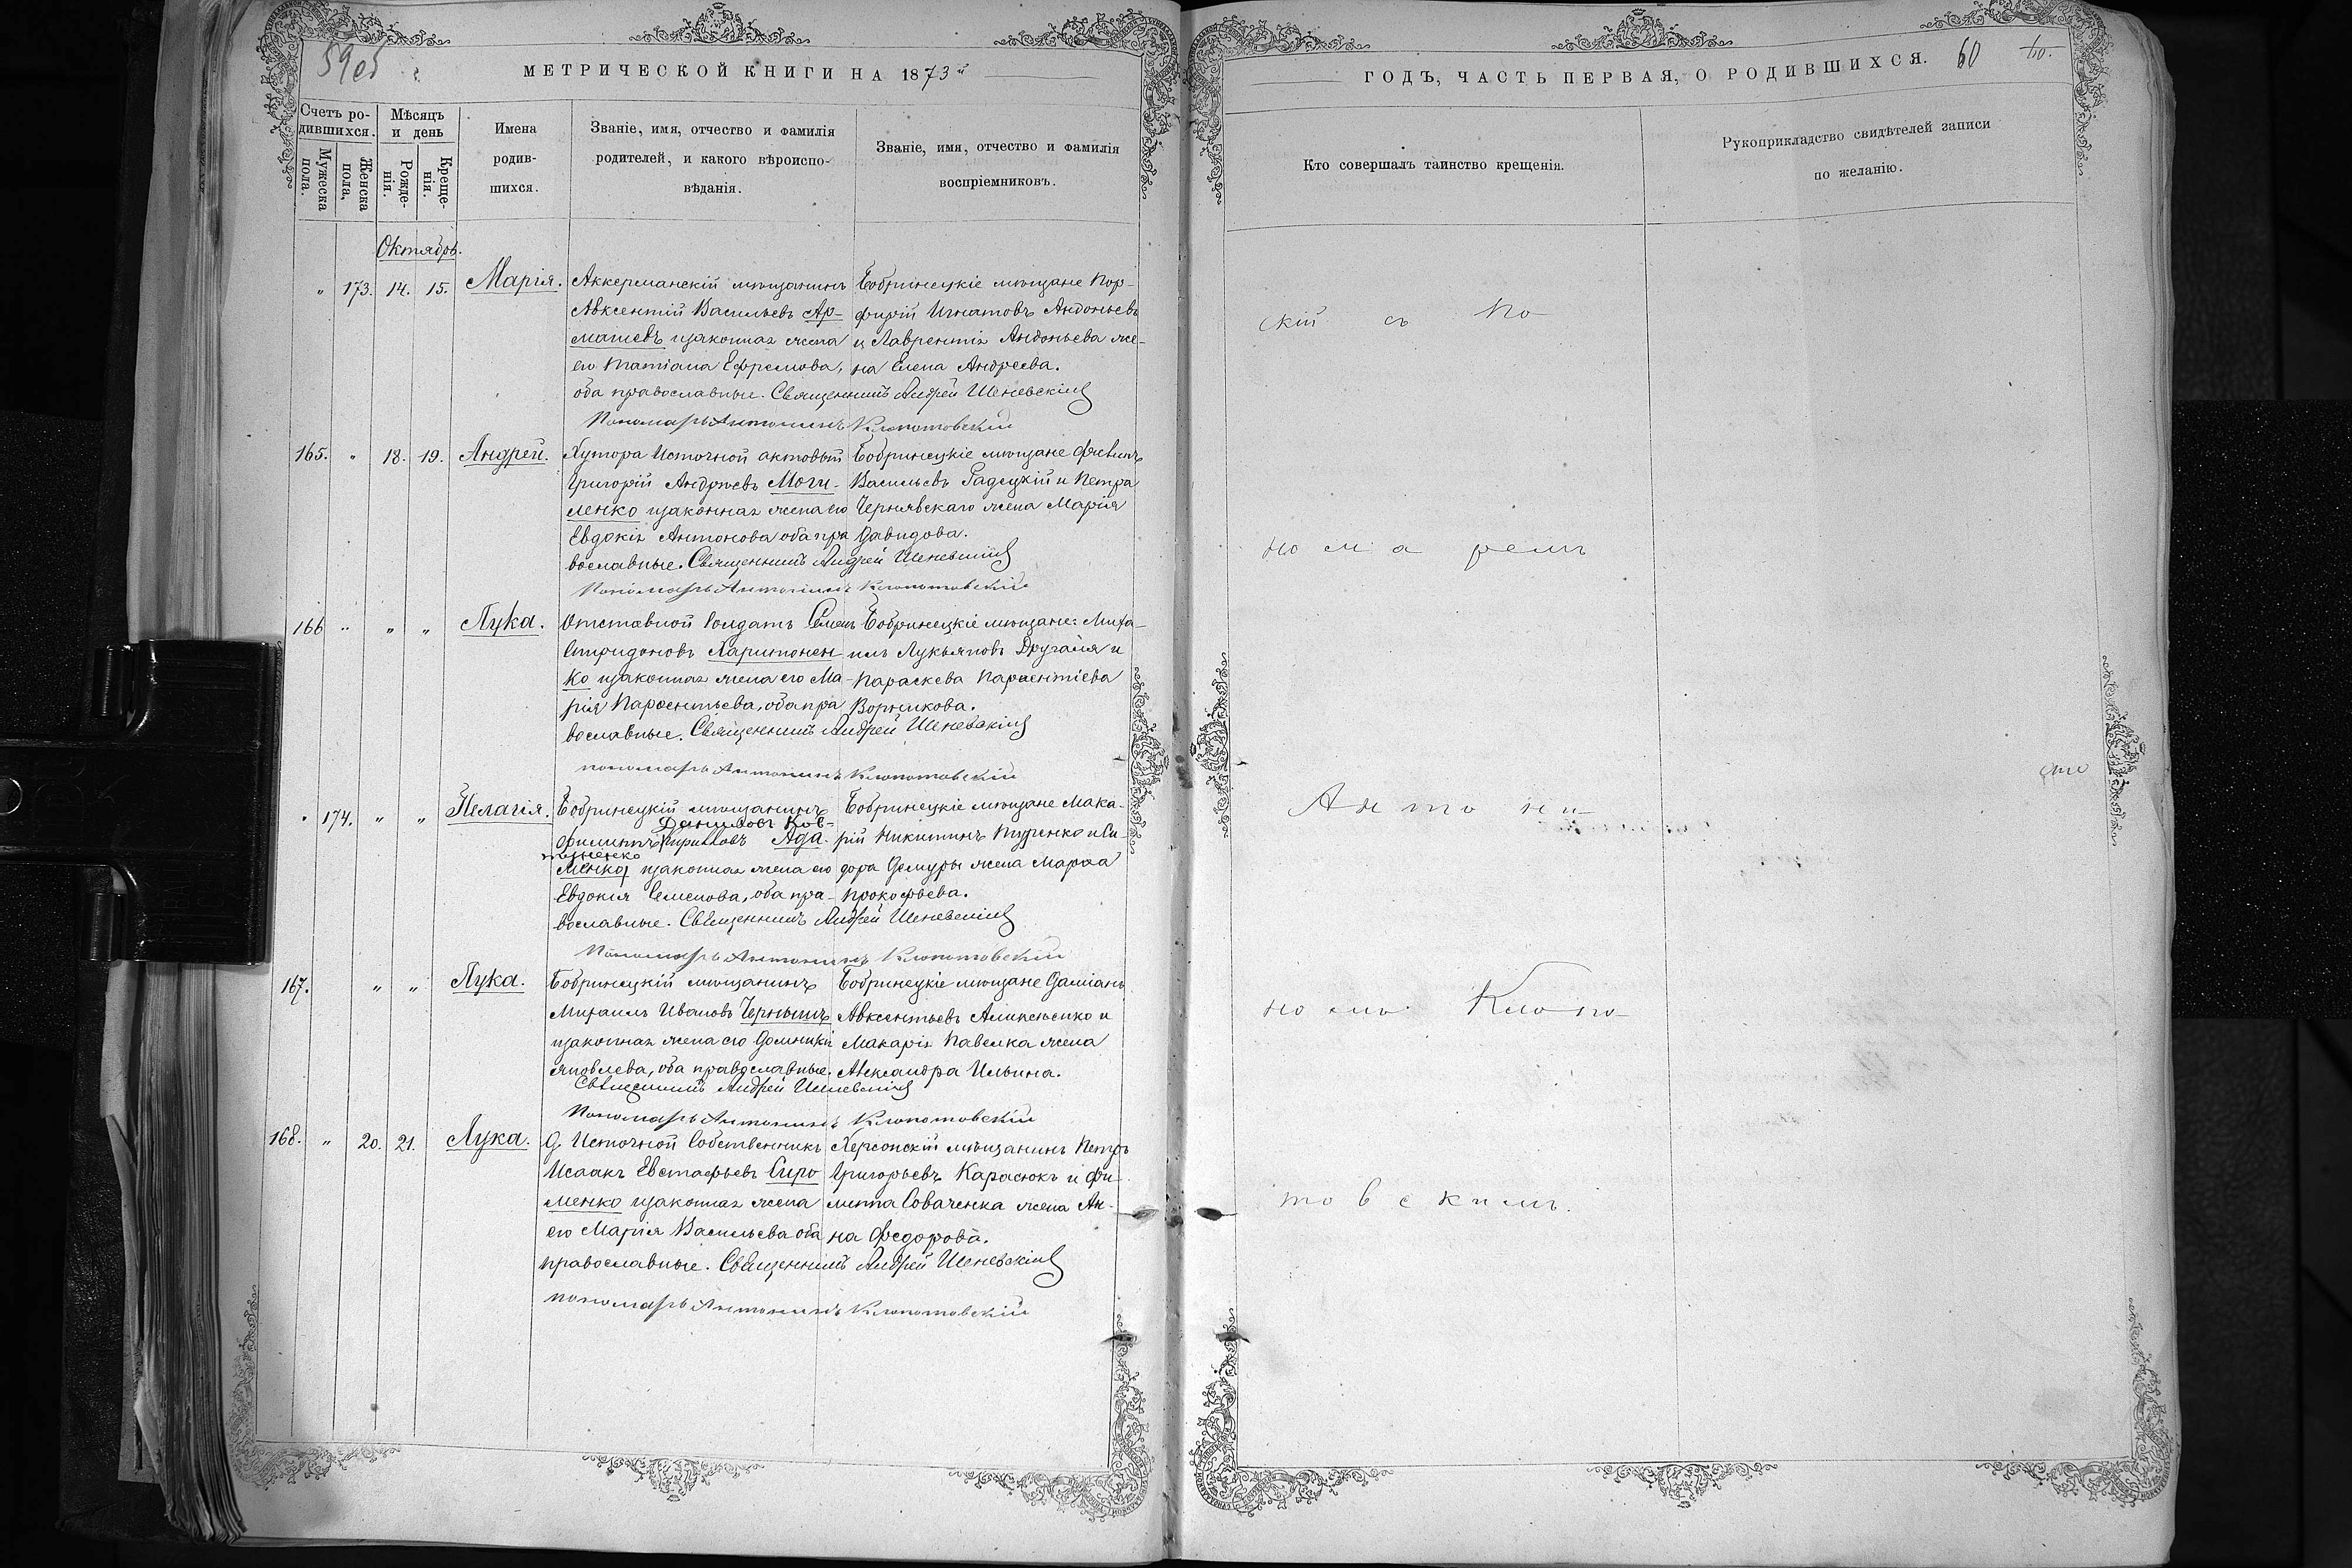 59об
МЕТРИЧЕСКОЙ КНИГИ НА 1873й
Счетъ ро-
дившихся.
Мужеска пола.
Женска пола.
Мѣсяцъ
и день
Рожде-
нія.
Креще-
нія.
Имена
родив-
шихся.
Званіе, имя, отчество и фамилія
родителей, и какого вѣроиспо-
вѣданія.
Званіе, имя, отчество и фамилія
воспріемниковъ.
Октябрь.
" 173. 14. 15. Марія.
Аккерманскій мѣщанинъ
Авксентій Васильевъ Ар-
машевъ и законная жена
его Татіана Ефремова,
оба православные. Священникъ Андрей Шеневскій
Пономарь Антонинъ Клопотовскій
Бобринецкіе мѣщане Пор-
фирій Игнатовъ Андоньевъ
и Лаврентія Андоньева же-
на Елена Андреева.
165. " 18. 19. Андрей.
Хутора Источной актовый
Григорій Андреевъ Моги-
ленко и законная жена его
Евдокія Антонова оба пра
вославные. Священникъ Андрей Шеневскій
Пономарь Антонинъ Клопотовскій
Бобринецкіе мѣщане
Васильевъ Гадецкій и Петра
Чернявскаго жена Марія
Давидова.
166 " " " Лука.
Отставной Солдатъ Семенъ
Спиридоновъ Харитонен
ко и законная жена его Ма-
рія Парѳентьева, оба пра
вославные. Священникъ Андрей Шеневскій
пономарь Антонинъ Клопотовскій
Бобринецкіе мѣщане: Миха-
илъ Лукьяновъ Другаля и
Параскева Парѳентіева
Ворникова.
" 174. " " Пелагія.
Бобринецкій мѣщанинъ
Даниловъ Ков-
Филиппъ Кириловъ Ада
менко и законная жена его
Евдокія Семенова, оба пра-
вославные. Священникъ Андрей Шеневскій
Пономарь Антонинъ Клопотовскій
Бобринецкіе мѣщане Мака-
рій Никитинъ Туренко и Си-
дора Демуры жена Марѳа
Прокофьева.
167. " " Лука.
Бобринецкій мѣщанинъ
Михаилъ Ивановъ Чернышъ
и законная жена его Домникія
Яковлева, оба православные.
Священникъ Андрей Шеневскій
Пономарь Антонинъ Клопотовскій
Бобринецкіе мѣщане Даміанъ
Авксентьевъ Алипененко и
Макарія Павелка жена
Александра Ильина.
168. " 20. 21. Лука.
Д. Источной Собственникъ
Исаакъ Евстафьевъ Сиро
менко и законная жена
его Марія Васильева оба
православные. Священникъ Андрей Шеневскій
пономарь Антонинъ Клопотовскій
Херсонскій мѣщанинъ Петръ
Григорьевъ Карасюкъ и Фи-
липа Соваченка жена Ан-
на Федорова.
ГОДЪ, ЧАСТЬ ПЕРВАЯ, О РОДИВШИХСЯ. 60
Кто совершалъ таинство крещенія.
Рукоприкладство свидѣтелей записи
по желанію.
скій съ По
номаремъ
Антони
номъ Клопо
товскимъ.